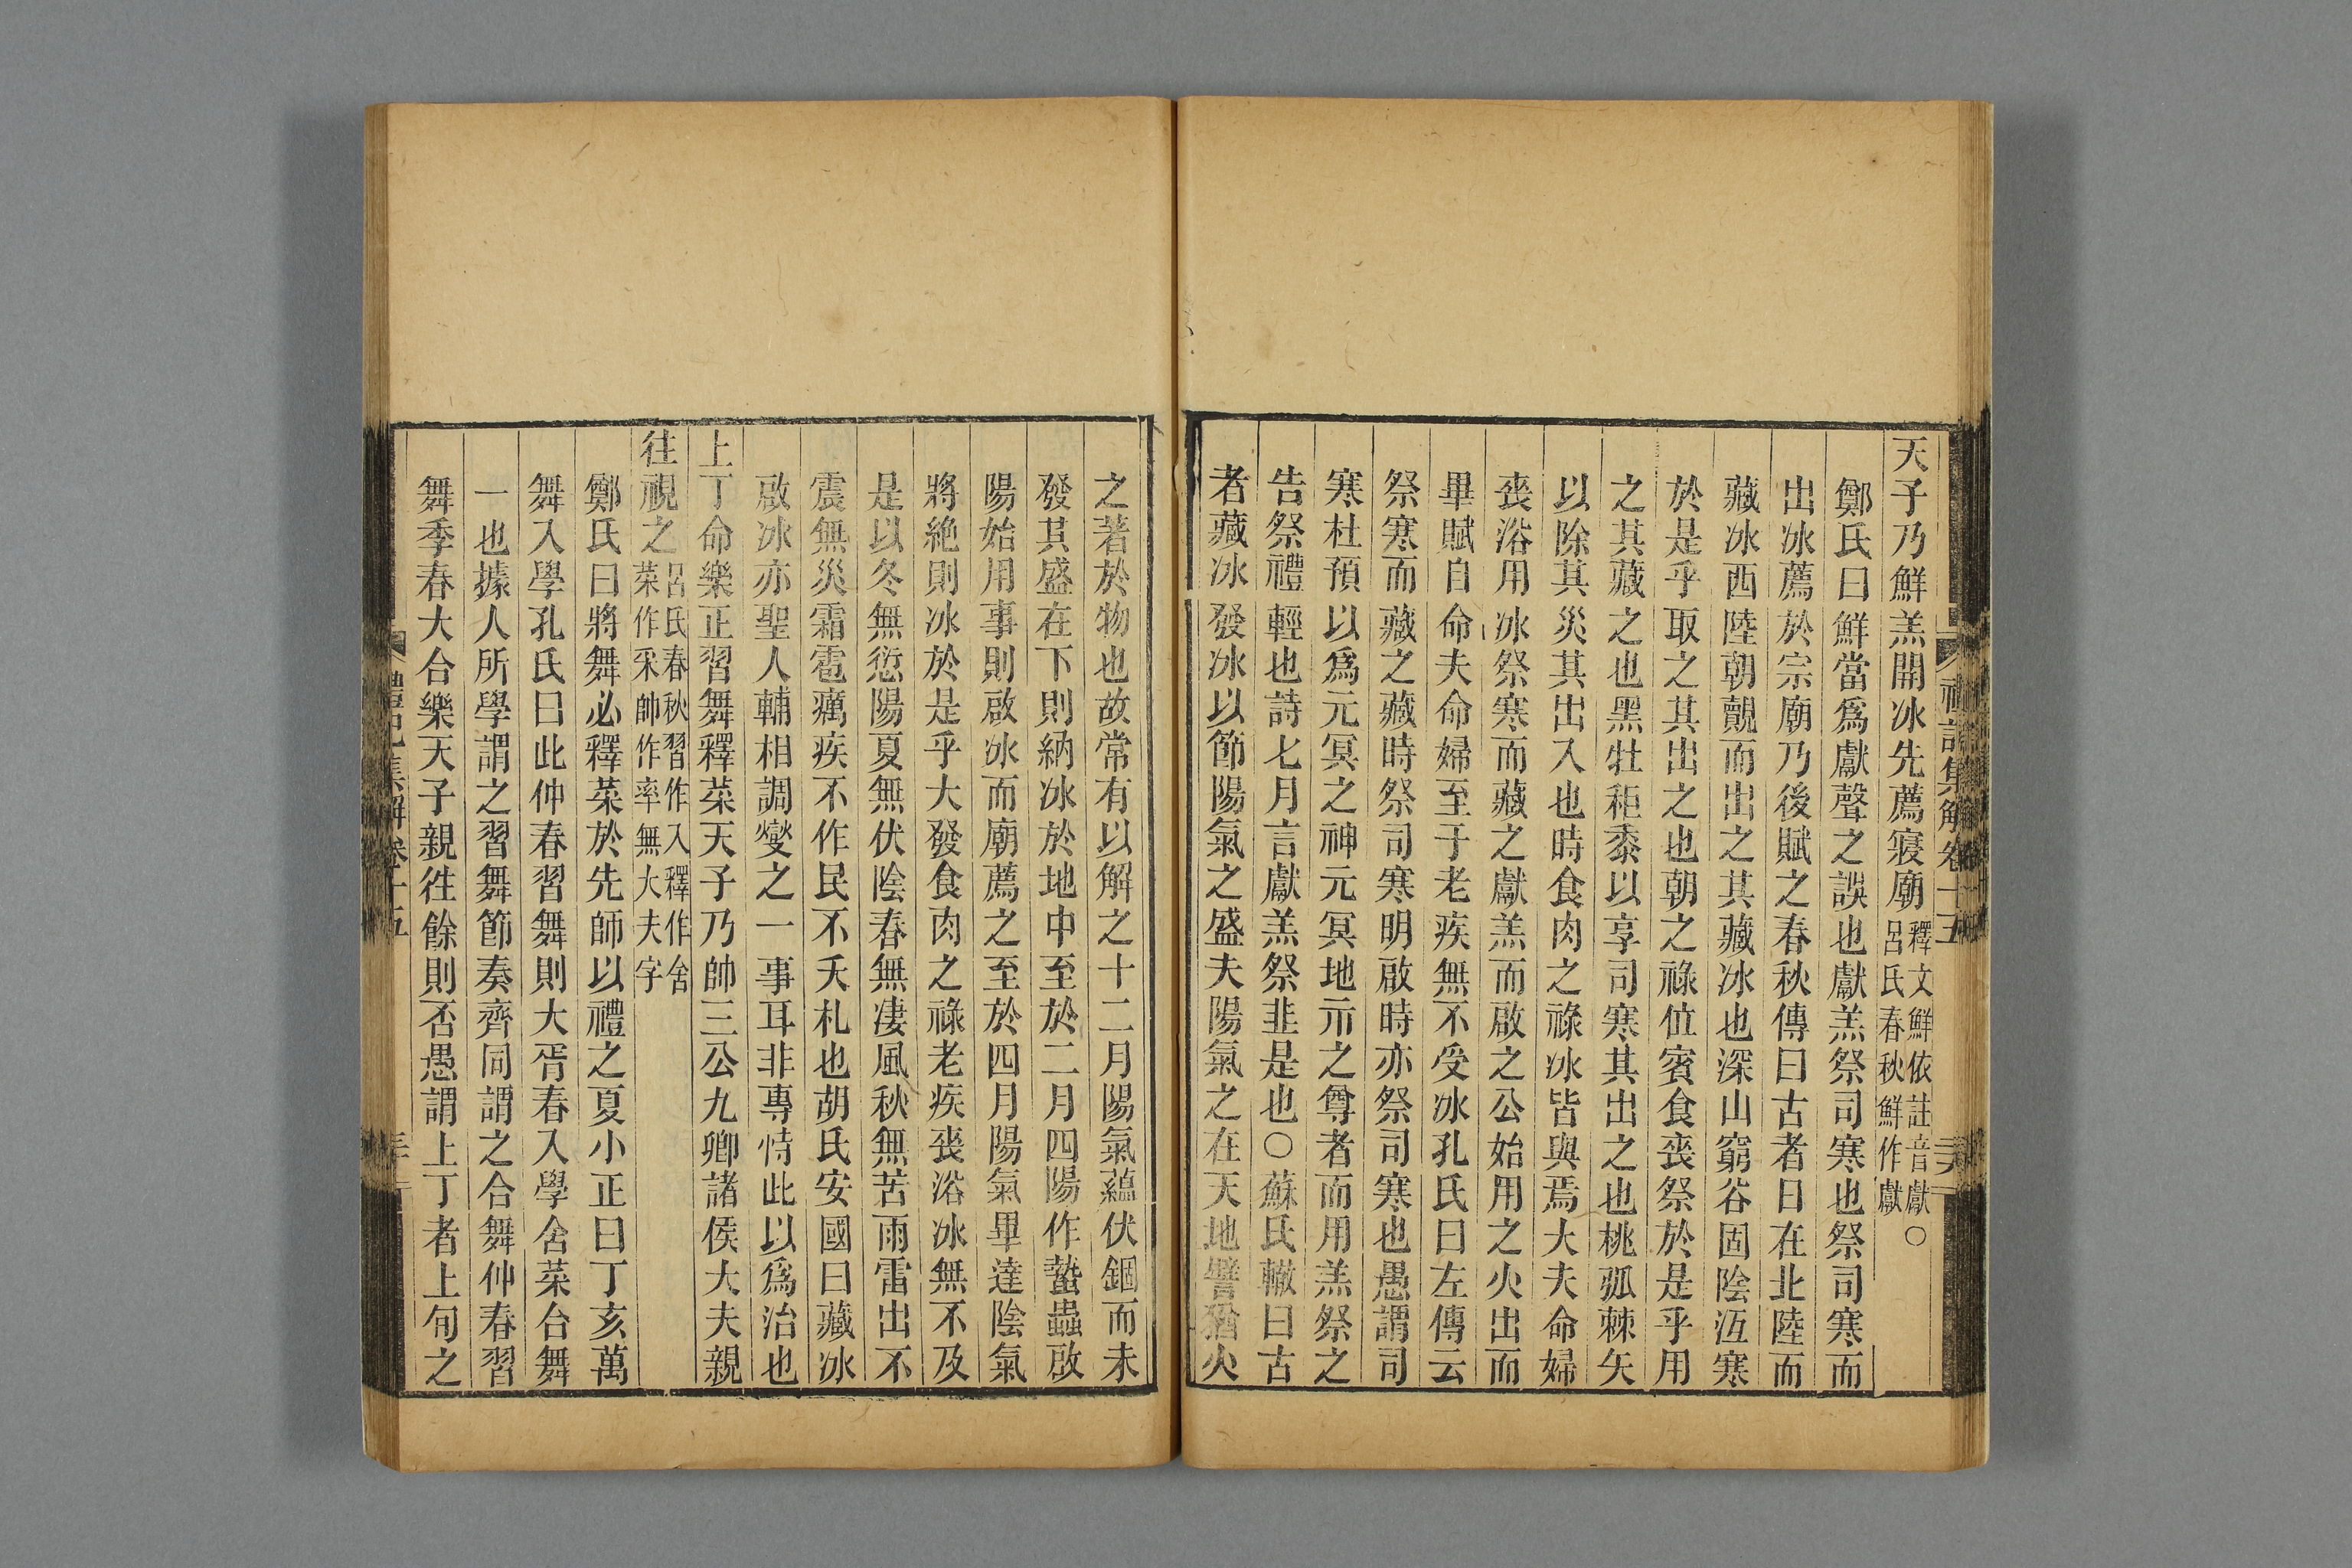 禮記集解卷十五
天子乃鮮羔開冰先薦寢廟釋文鮮依註音獻○呂氏春秋鮮作獻
鄭氏曰鮮當爲獻聲之誤也獻羔祭司寒也祭司寒而
出冰薦於宗廟乃後賦之春秋傳曰古者日在北陸而
藏冰西陸朝覿而出之其藏冰也深山窮谷固陰沍寒
於是乎取之其出之也朝之祿位賓食喪祭於是乎用
之其藏之也黑牡秬黍以享司寒其出之也桃弧棘矢
以除其災其出入也時食肉之祿冰皆與焉大夫命婦
喪浴用冰祭寒而藏之獻羔而啟之公始用之火出而
畢賦自命夫命婦至于老疾無不受冰孔氏曰左傳云
祭寒而藏之藏時祭司寒明啟時亦祭司寒也愚謂司
寒杜預以爲元冥之神元冥地示之尊者而用羔祭之
告祭禮輕也詩七月言獻羔祭韭是也○蘇氏轍曰古
者藏冰發冰以節陽氣之盛夫陽氣之在天地譬猶火
之著於物也故常有以解之十二月陽氣蘊伏錮而未
發其盛在下則納冰於地中至於二月四陽作蟄蟲啟
陽始用事則啟冰而廟薦之至於四月陽氣畢達陰氣
將絶則冰於是乎大發食肉之祿老疾喪浴冰無不及
是以冬無愆陽夏無伏陰春無凄風秋無苦雨雷出不
震無災霜雹癘疾不作民不夭札也胡氏安國曰藏冰
啟冰亦聖人輔相調燮之一事耳非專恃此以爲治也
上丁命樂正習舞釋菜天子乃帥三公九卿諸侯大夫親
往視之呂氏春秋習作入釋作舍菜作采帥作率無大夫字
鄭氏曰將舞必釋菜於先師以禮之夏小正曰丁亥萬
舞入學孔氏曰此仲春習舞則大胥春入學舍菜合舞
一也據人所學謂之習舞節奏齊同謂之合舞仲春習
舞季春大合樂天子親往餘則否愚謂上丁者上旬之
禮記集解卷十五